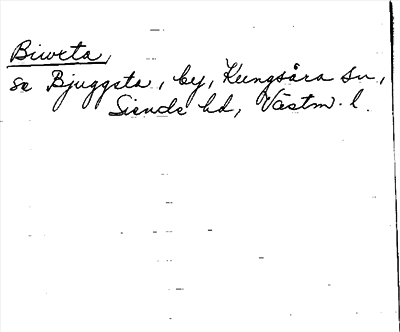 Biweta,
se Bjuggsta, by, Kungsåra sn,
Siende hd, Västm. l.